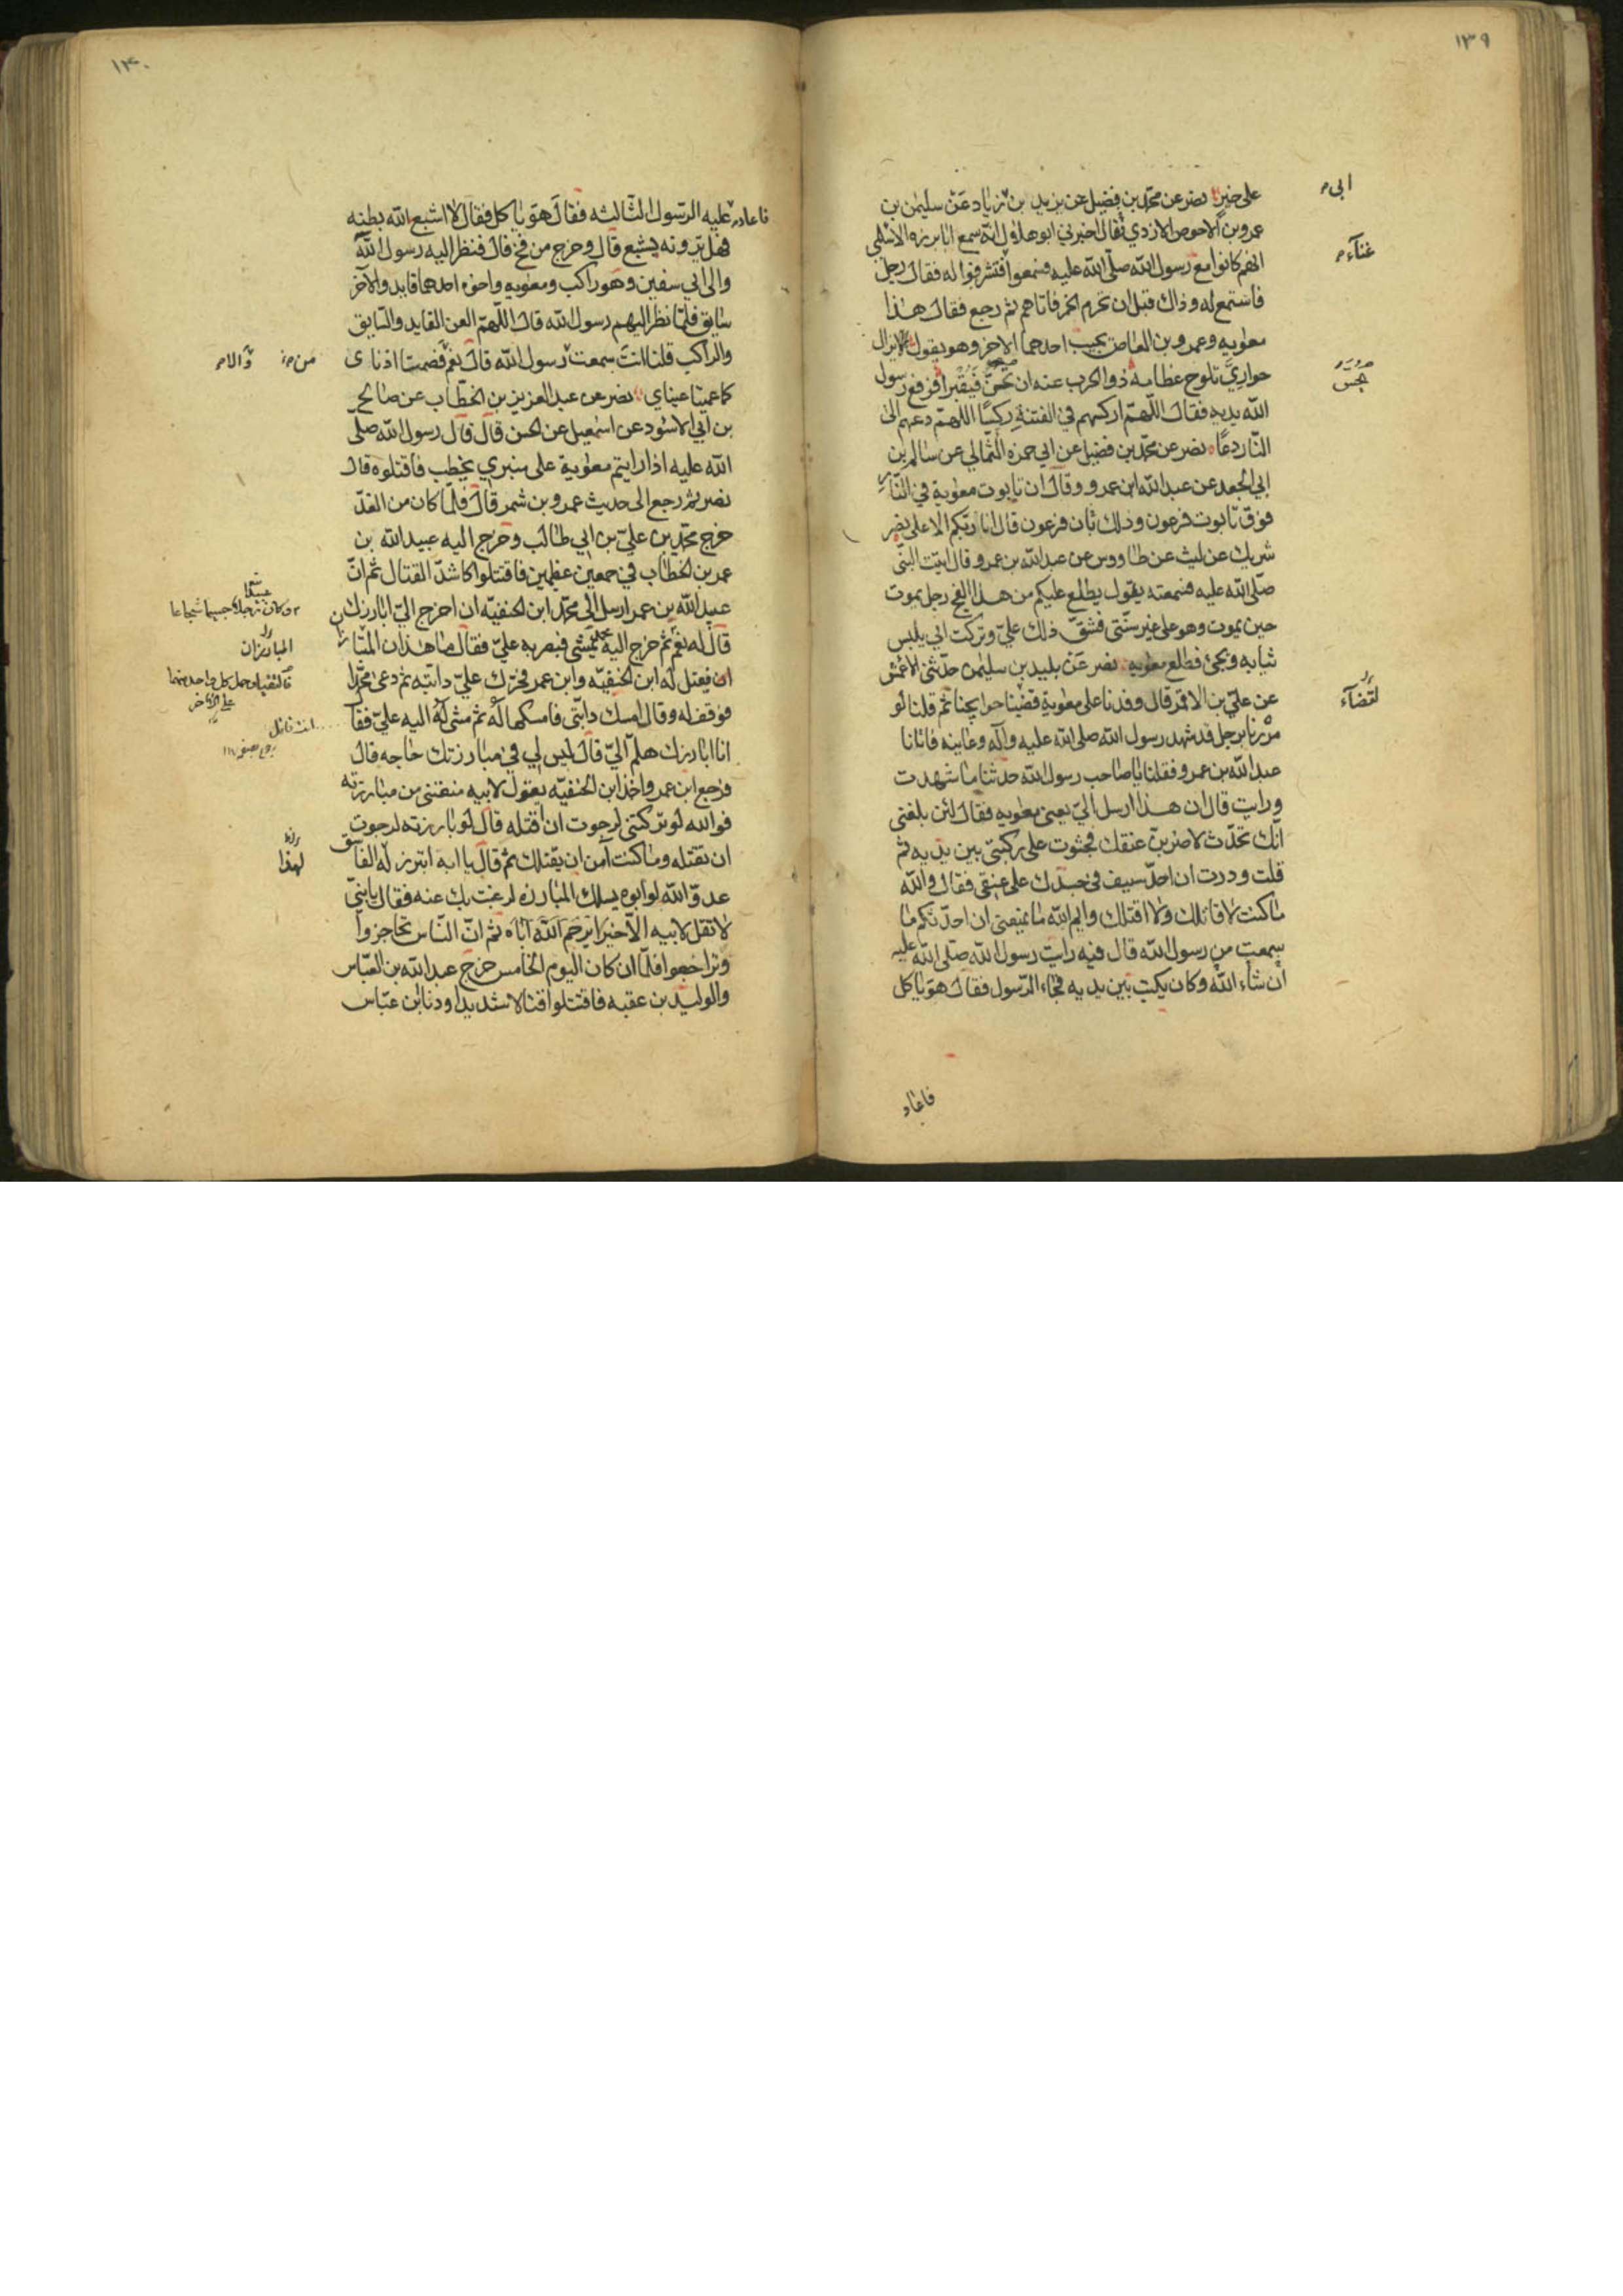 ١٣٩
على خير نصر عن محمد بن فضيل عن يزيد بن زياد عن سليمن بن
ابى
عمرو بن الاحوص الازدي قال اخبرني ابو هلال انه سمع ابا برزه الاسلمي
انهم كانوا مع رسول الله صلى الله عليه فسمعوا فتشرفوا له فقال رجل
غنآء
فاستمع له وذاك قبل ان تحرم الخمر فاتاهم ثم رجع فقال هذا
معويه وعمرو بن العاص يجيب احدهما الاخر وهو يقول لايزال
حواري تلوح عظامه ذوالحرب عنه ان يحس فيقبرا فرفع رسول
يجس
الله يديه فقال اللهم اركسهم في الفتنة ركسًا اللهم دعهم الى
النار دعًا نصر عن محمد بن فضيل عن ابي حمزه الثمالي عن سالم بن
ابي الجعد عن عبد الله ابن عمرو وقال ان تابوت معوية في النار
فوق تابوت فرعون وذلك ثان فرعون قال انا ربكم الاعلى نصر
شريك عن ليث عن طاووس عن عبد الله بن عمرو قال اتيت النبى
صلى الله عليه فسمعته يقول يطلع عليكم من هذا الفج رجل يموت
حين يموت وهو على غير سنتى فشق ذلك علي وتركت ابي يلبس
ثيابه ويجئ فطلع معويه نصر عن بليد بن سليمن حدثنى الاعمش
عن علي بن الاقمر قال وفدنا على معوية فقضينا حوايجنا ثم قلنا لو
لقضآء
مررنا برجل قد شهد رسول الله صلى الله عليه وآله وعاينه فاتانا
عبد الله بن عمرو فقلنا يا صاحب رسول الله حدثنا ما شهدت
ورايت قال ان هذا ارسل الي يعنى معويه فقال لئن بلغنى
انك تحدث لاضربن عنقك فجثوت على ركبتى بين يديه ثم
قلت وددت ان احد سيف فى جندك على عنقى فقال والله
ما كنت لاقاتلك ولا اقتلك وايم الله ما يمنعنى ان احدثكم ما
سمعت من رسول الله قال فيه رايت رسول الله صلى الله عليه
ان شاء الله وكان يكتب بين يديه فجاء الرسول فقال هو ياكل
فاعاد
١٣٠
فاعاد عليه الرسول الثالثه فقال هو ياكل فقال لا اشبع الله بطنه
فهل ترونه يشبع قال وخرج من فج قال فنظر اليه رسول الله
والى ابي سفين وهو راكب ومعويه واخوه احدهما قايد والآخر
سايق فلما نظر اليهم رسول الله قال اللهم العن القايد والسايق
والراكب قلنا انت سمعت رسول الله قال نعم فصمتا اذناى
من والا
كما عميتا عيناي نصر عن عبد العزيز بن الخطاب عن صالح
بن ابي الاسود عن اسمعيل عن الحسن قال قال رسول الله صلى
الله عليه اذا رايتم معوية على منبري يخطب فاقتلوه قال
نصر ثم رجع الى حديث عمرو بن شمر قال فلما كان من الغد
خرج محمد بن علي بن ابي طالب وخرج اليه عبيد الله بن
عمر بن الخطاب في جمعين عظيمين فاقتتلوا كاشد القتال ثم ان
عبيد الله بن عمر ارسل الى محمد ابن الحنفيه ان اخرج الي ابارزك
وكان رجلا جسيما شجاعا
قال له نعم ثم خرج اليه يمشى فبصر به علي فقال ما هذان المتبارزا
المبارزان
ان فيقتل له ابن الحنفيه وابن عمر فحرك علي دابته ثم دعى محمدا
فالتقيا وحمل كل واحد منهما
على الآخر
فوقف له وقال امسك دابتى فامسكها له ثم مشى له اليه علي فقال
انا ابارزك هلم الي قال ليس لي في مبارزتك حاجه قال
فرجع ابن عمر واخذ ابن الحنفيه يقول لابيه منعتنى من مبارزته
فوالله لو تركتنى لرجوت ان اقتله قال لو بارزته لرجوت
ان تقتله وما كنت آمن ان يقتلك ثم قال يا ابه اتبرز له الفاسق
لهذا
عدو الله لو ابوه يسلك المبارزه لرغبت بك عنه فقال يا بنيّ
لا تقل لابيه الا خيرا يرحم الله اباه ثم ان الناس تحاجزوا
وتراجعوا فلما ان كان اليوم الخامس خرج عبد الله بن العباس
والوليد بن عقبه فاقتتلوا قتالا شديدا ودنا ابن عباس